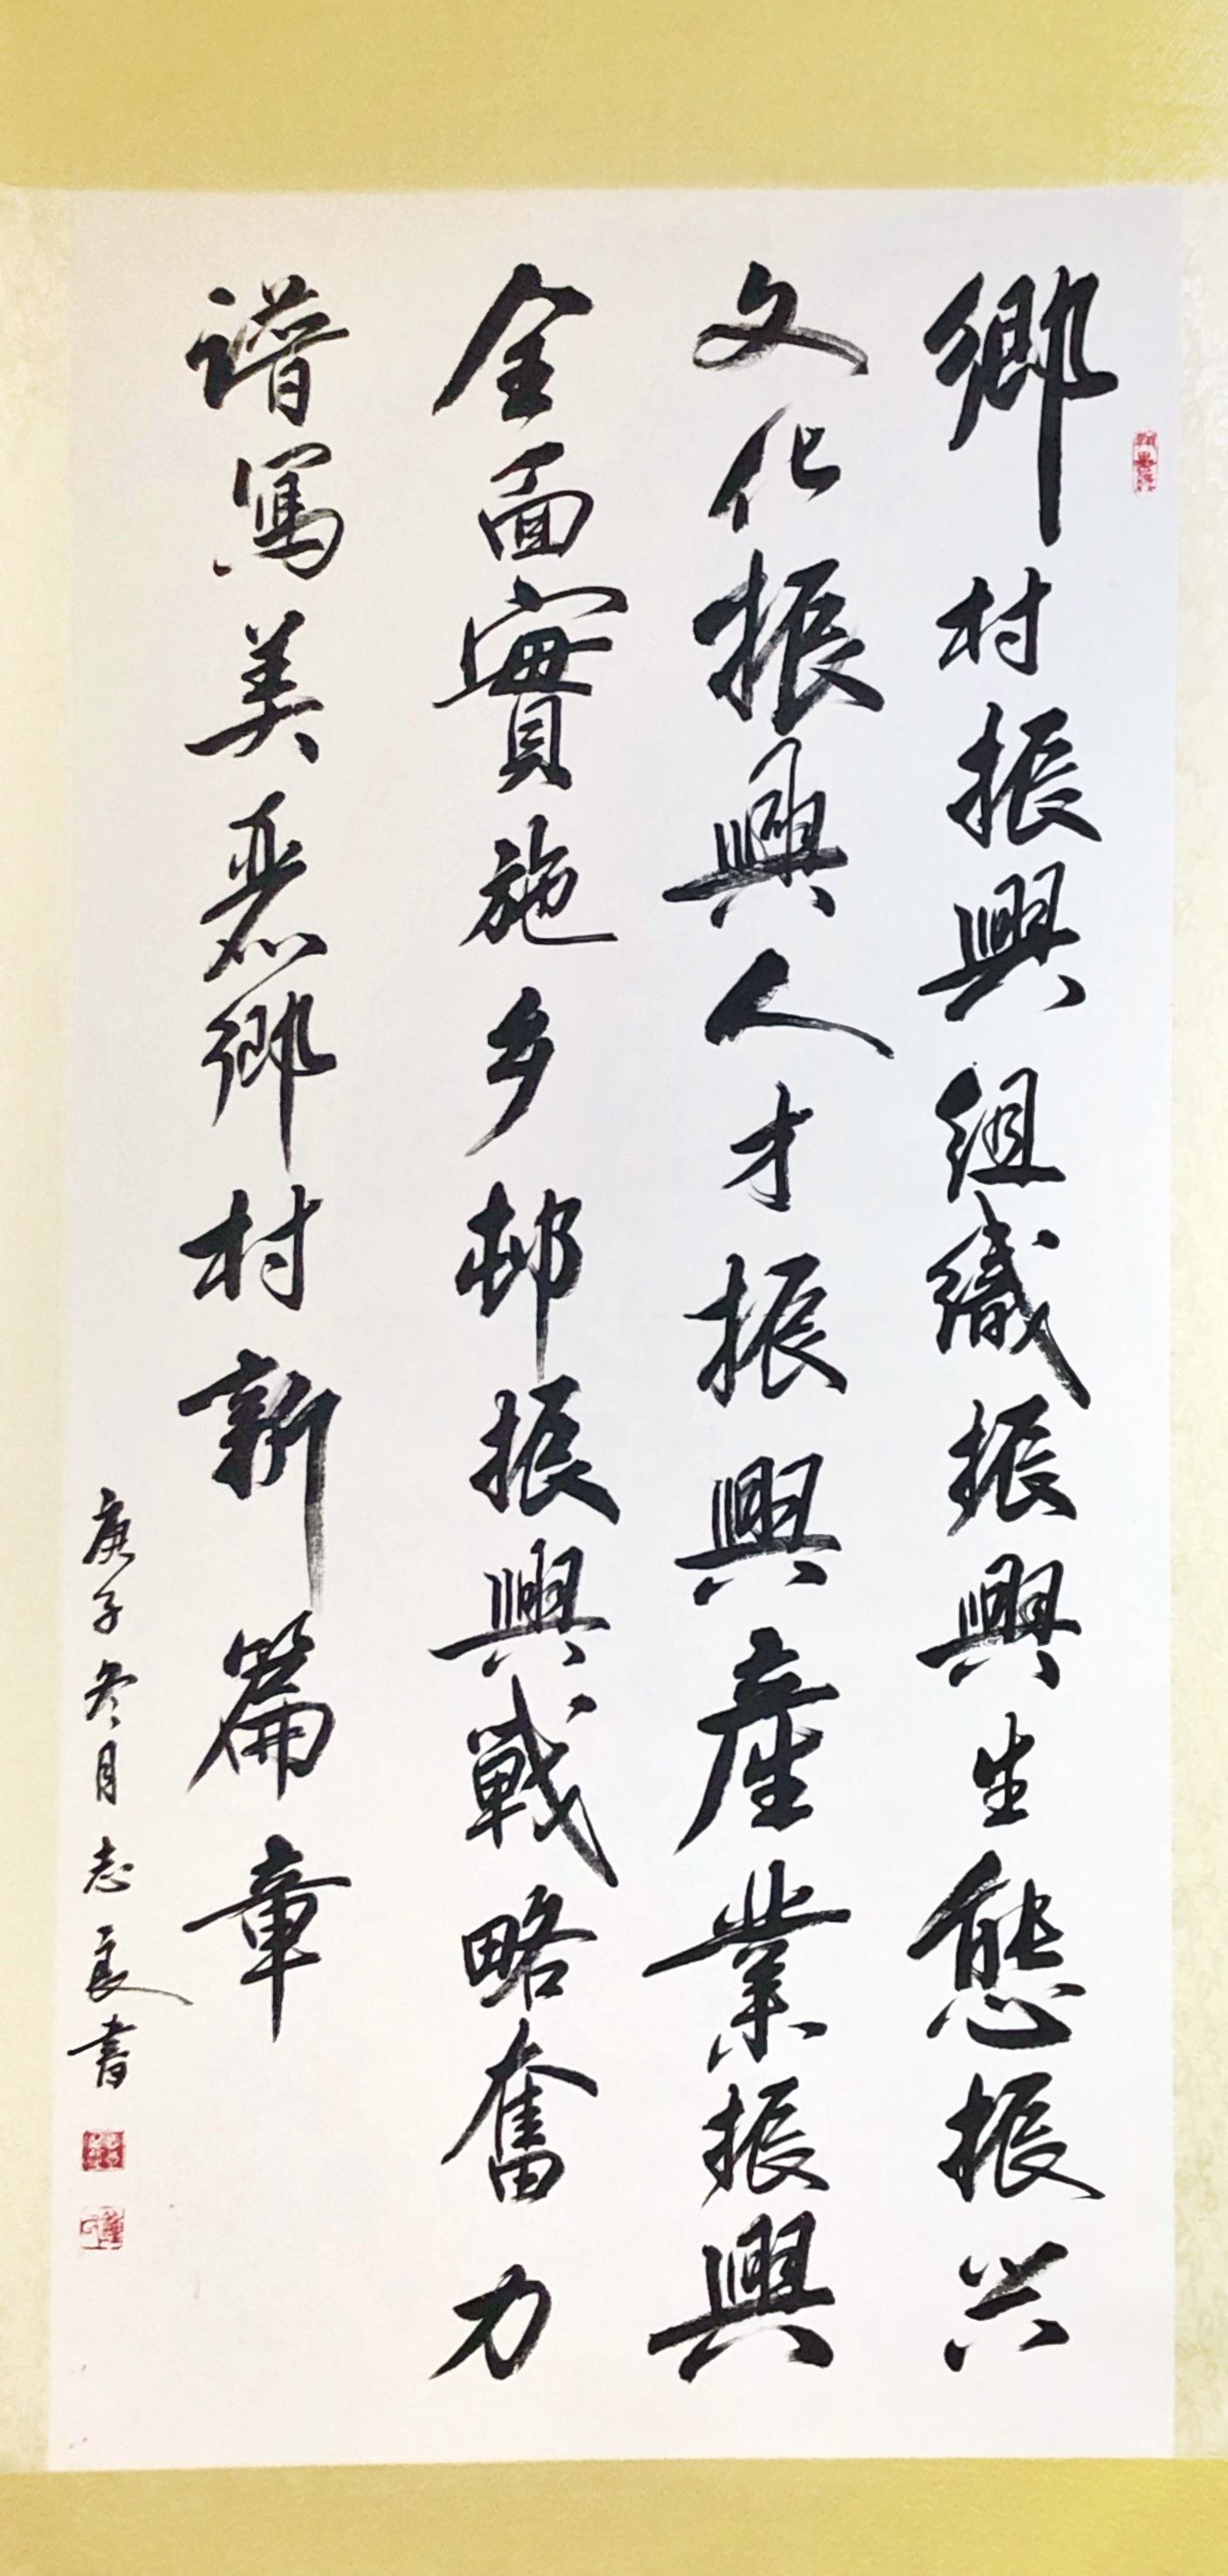 鄉村振興組織振興生態振兴
文化振興人才振興産業振興
全面實施乡邨振興戰略奮力
谱寫美麗鄉村新篇章
庚子冬月志良書